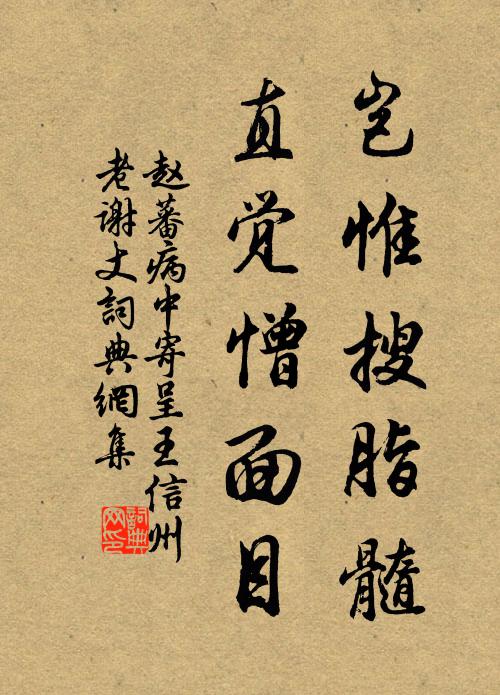 岂惟搜脂髓
直觉憎面目
赵蕃病中寄呈王信州
老谢丈詞典網集
詞典网印